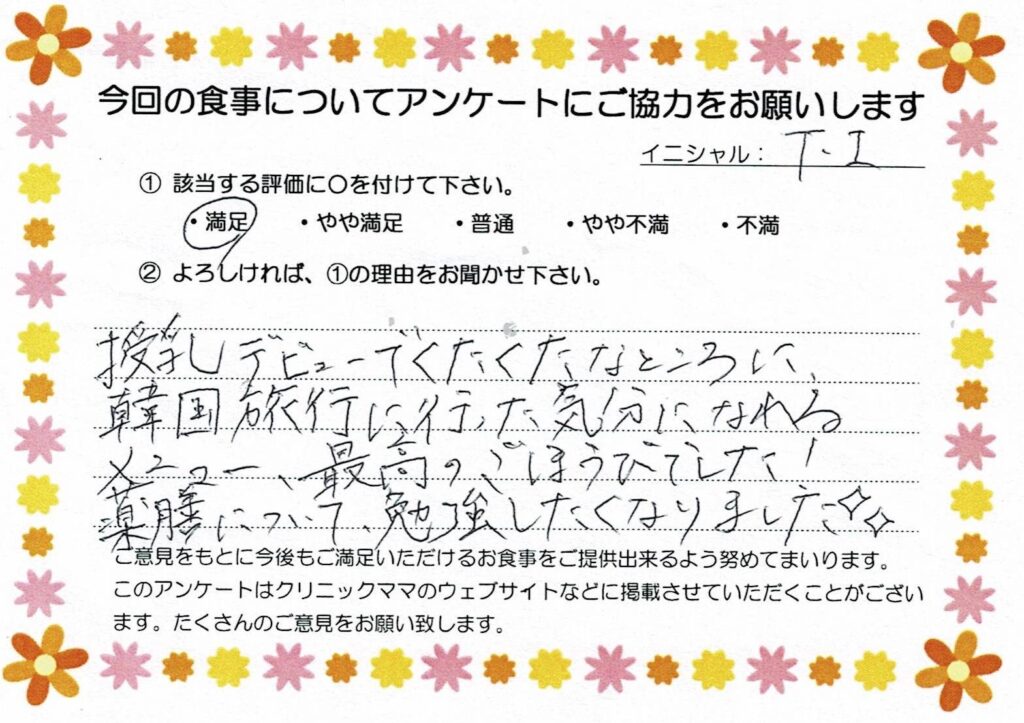 今回の食事についてアンケートにご協力をお願いします
イニシャル： T.I
① 該当する評価に○を付けて下さい。
・満足 ・やや満足 ・普通 ・やや不満 ・不満
② よろしければ、①の理由をお聞かせ下さい。
授乳デビューでくたくたなところに、
韓国旅行に行った気分になれる
メニュー、最高のごほうびでした!
薬膳について、勉強したくなりました✧✧
ご意見をもとに今後もご満足いただけるお食事をご提供出来るよう努めてまいります。
このアンケートはクリニックママのウェブサイトなどに掲載させていただくことがござい
ます。たくさんのご意見をお願い致します。